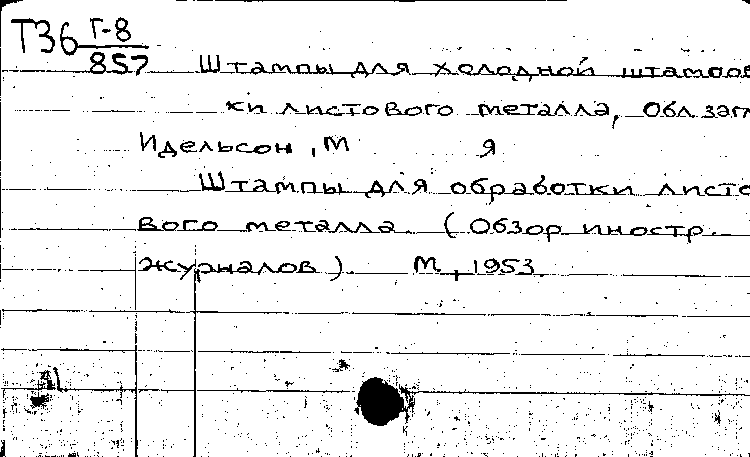 Т36 Г-8
857 Штампы для холодной штампов
ки листового металла, Обл. загл
Идельсон, М Я
Штампы для обработки листо
вого металла. (Обзор иностр.
журналов). М, 1953.